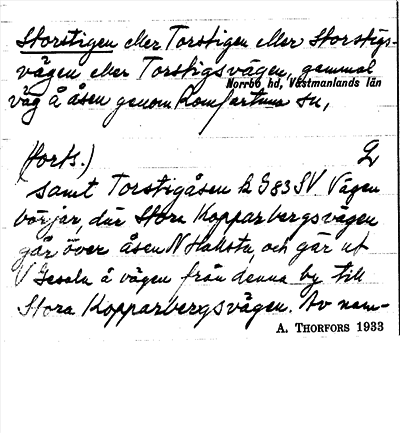 Storstigen eller Torstigen eller Storstigs-
vägen eller Torstigsvägen, gammal
Norrbo hd, Västmanlands län
väg å åsen genom Romfartuna sn,
(forts.) 2
samt Torstigåsen G83SV. Vägen
börjar, där Stora Kopparbergsvägen
går över åsen N Hallsta, och går ut
V Gesala å vägen från denna by till
Stora Kopparbergsvägen. Av nam-
A. THORFORS 1933